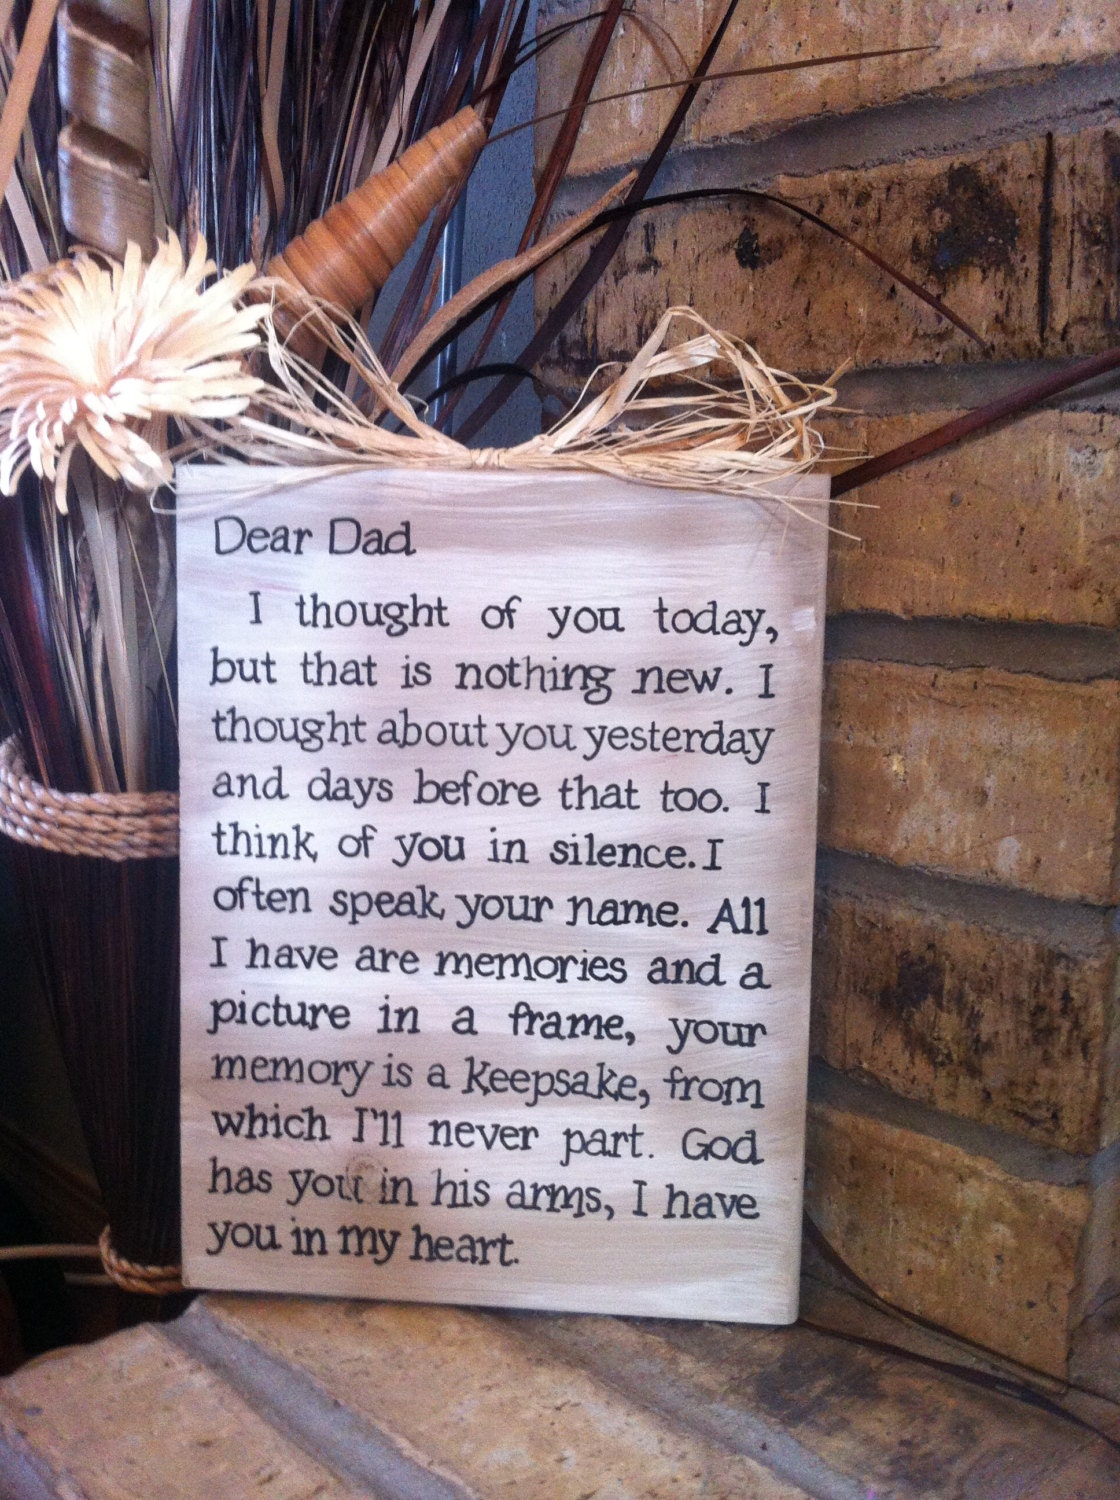 Dear Dad
I thought of you today,
but that is nothing new. I
thought about you yesterday
and days before that too. I
think of you in silence. I
often speak your name. All
I have are memories and a
picture in a frame, your
memory is a keepsake, from
which I'll never part. God
has you in his arms, I have
you in my heart.